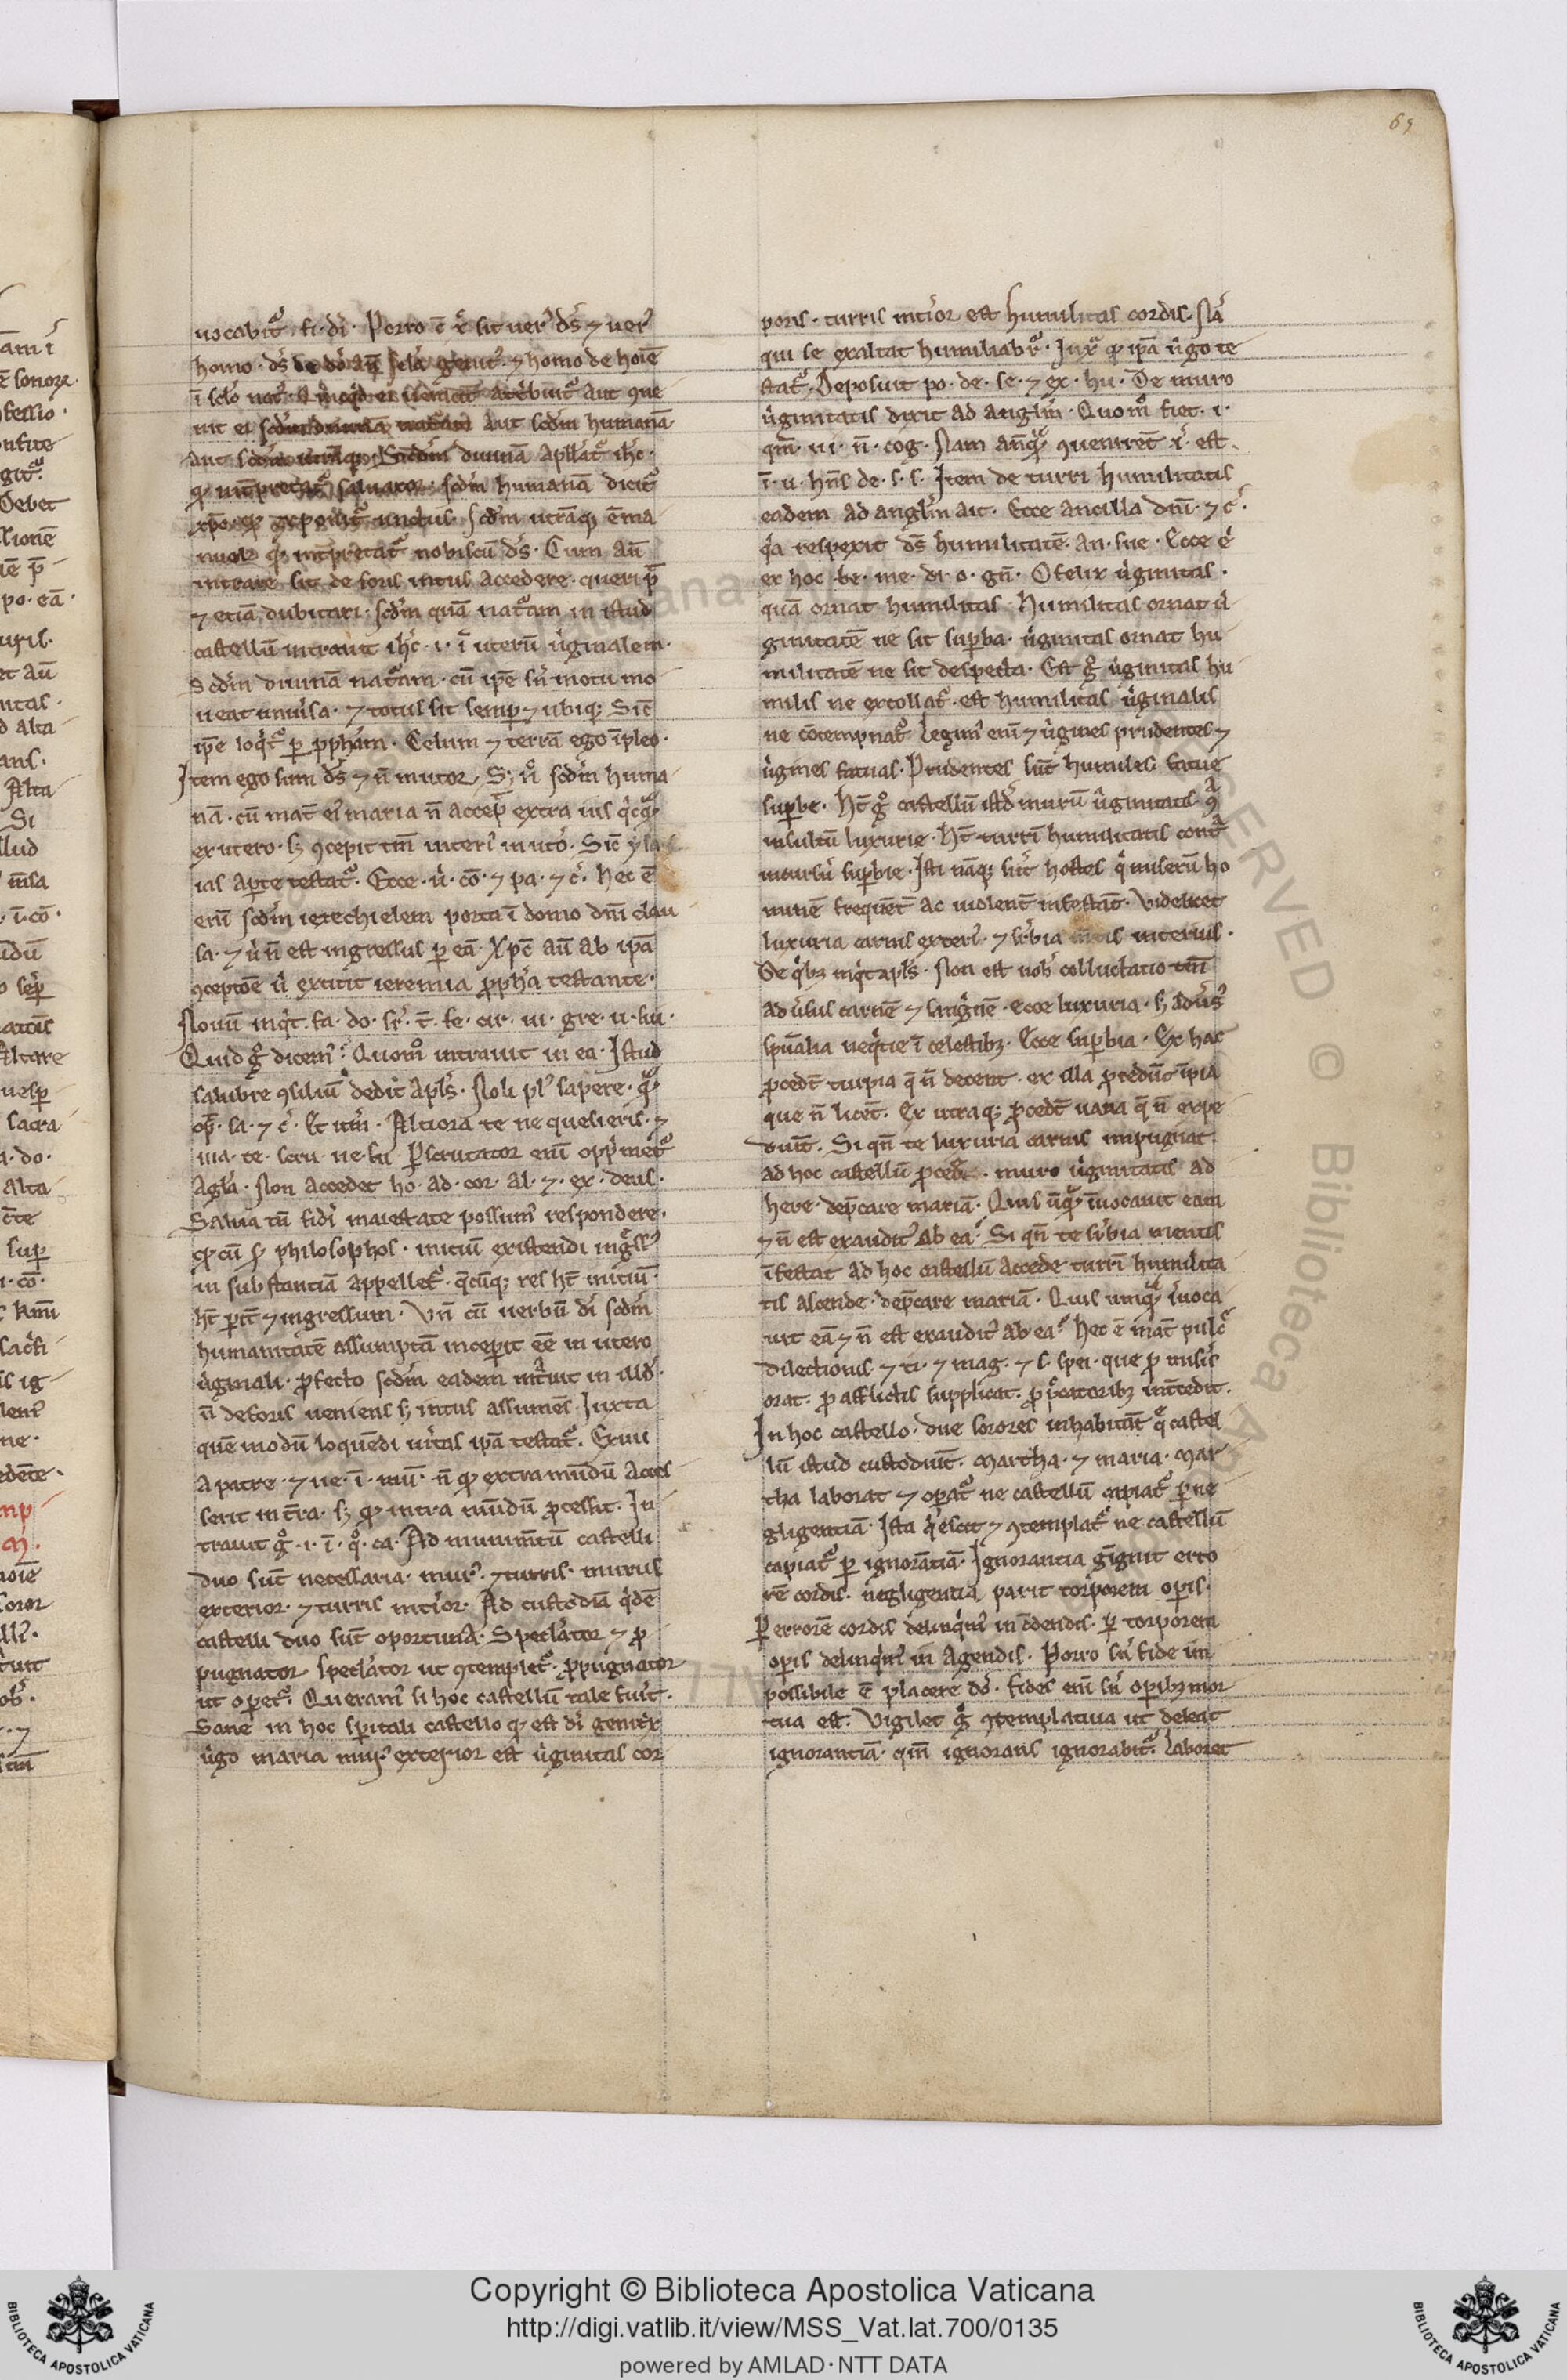 65
uocabit᷑. fi. di. Porro c̄ x᷑ sit uer᷒ ds̄ ⁊ uer᷒
homo. ds̄ de dō añ scl̄a genit᷒. ⁊ homo de hoīe
ī scl̄o nat᷒. aut ꝯue
nit ei aut scdm̄ humanā
aut diuinā apll̓at᷑ ih̓c.
saluator. scdm̄ humanā dicit᷑
unctus. scdm̄ utrāq; ēma
nuel qd̓ int̄pretat᷑ nobiscū ds̄. Cum aū
intrare sit de foris intus accedere. queri p̄t
⁊ etiā dubitari. scdm̄ quā nat᷑am in istud
castellū intrauit ih̓c. i. ī uterū u᷑ginalem.
Scdm̄ diuinā nat᷑am. cū ip̄e sn̄ motu mo
ueat uniu᷑sa. ⁊ totus sit semꝑ ⁊ ubiq; Sic̄
ip̄e loqit᷑ ꝑ ꝓpham̄. Celum ⁊ terrā ego īpleo.
Item ego sum ds̄ ⁊ n̄ mutor. S; n̊ scdm̄ huma
nā. cū mat̄ ei᷒ maria n̄ accep̄
ex utero. s; ꝯcepit tm̄ interi᷒ in uto᷑. Sic̄ ysa
ias aperte testat᷑. Ecce. u̓. co᷑. ⁊ pa. ⁊ c᷑. hec ē
eni᷑ scdm̄ iezechielem porta ī domo dn̄i clau
sa. ⁊ u̓ n̄ est ingressus ꝑ eā. Xpc̄ aū ab ipā
ꝯceptōe u̓ extitit ieremia ꝓph̓a testante.
Nouū inqt. fa. do. sr̓. t̄. fe. cir. ui. gre. u. su.
Quid gͦ dicem᷒? Quom̊ intrauit in ea. Istud
salubre ꝯsiliū dedit apl̓s. Noli pl᷒ sapere.
op̄. sa. ⁊ c᷑. Et itm̄. Altiora te ne quesieris. ⁊
ma. te. scru. ne. su. Perscrutator eni᷑ opp̓met᷑
a gl̓a. Non accedet ho. ad. cor. al. ⁊. ex. deus.
Salua tn̄ fidi maiestate possum᷒ respondere.
qͣ cū philosophos. initiū existendi ingͣss᷒
in substantiā appellet᷑. qcūq; res ht̄ initiū.
ht̄ perit̄ ⁊ ingressum. Vn̄ cū uerbū di᷑ scdm̄
humanitatē assumptā inceperit eē in utero
u᷑ginali. ꝓfecto scdm̄ eadem int̓uit in illd̓.
n̄ deforis ueniens s; intus assumēs. Iuxta
quē modū loquēdi u᷑itas ipā testat᷑. Exiui
a patre. ⁊ ue. ī. mū. n̄ qͣ extra mūdū acces
serit int̄ra. s; qͣ intra mūdū ꝓcessit. In
trauit gͦ. i. ī. qͦ. ca. Ad munim̄tū castelli
duo sūt necessaria. mur᷒. ⁊ turris. murus
exterior. ⁊ turris int̓ior. Ad custodiā qͥdē
castelli duo sūt oportuna. Speclator ⁊ ꝓ
pugnator. speclator ut ꝯtemplet᷑. ꝓpugnator
ut operet᷑. Queram᷒ si hoc castellū tale fuit.
Sane in hoc sp̄itali castello qd̓ est di᷑ genitͥx
u᷑go maria mur᷒ exterior est u᷑ginitas cor
poris. turris int̓ior est humilitas cordis. Nā
qui se exaltat humiliabr᷑. Iuxͣ qd̓ ipā u᷑go te
stat᷑. Deposuit po. de. se. ⁊ ex. hu. De muro
u᷑ginitatis dixit ad angl̓m. Quom̊ fiet. i.
qm̄. ui. n̄. cog. Nam anq̄ꝫ ꝯuenirēt x᷑. est.
ī. u. hn̄s de. s. s. Item de turri humilitatis
eadem ad angl̓m ait. Ecce ancilla dn̄i. ⁊ c᷑.
qͥa respexit ds̄ humilitatē. an. sue. Ecce e᷑
ex hoc. be. me. di. o. gn̄. O felix u᷑ginitas.
quā ornat humilitas. Humilitas ornat u᷑
ginitatē ne sit suꝑba. u᷑ginitas ornat hu
militatē ne sit despecta. Est gͦ u᷑ginitas hu
milis ne extollat᷑. est humilitas u᷑ginalis
ne cōtempnat᷑. Legim᷒ eni᷑ ⁊ u᷑gines prudentes ⁊
u᷑gines fatuas. Prudentes sūt humiles. fatue
suꝑbe. Ht̄ gͦ castellū istd̓ murū u᷑ginitatis ꝯͣ
insultū luxurie. Ht̄ turrī humilitatis contͣ
incursū suꝑbie. Isti nāq; sūt hostes qͥ miserū ho
minē frequēt̄ ac uiolent̄ infestāt. Videlicet
luxuria carnis exteri᷒. ⁊ suꝑbia m̄tis interius.
De qͥb; inqt apl̓s. Non est nob̓ colluctatio tm̄
adu᷑sus carnē ⁊ sangͥnē. Ecce luxuria. s; adu᷑s᷒
sp̄ualia neqͥtie ī celestib;. Ecce suꝑbia. Ex hac
ꝓcedt̄ turpia q̄ n̄ decent. ex illa ꝓcedūt īpia
que n̄ licēt. Ex utraq; ꝓcedt̄ uana q̄ n̄ expe
diūt. Si qn̄ te luxuria carnis impugnat
ad hoc castellū ꝓcede. muro u᷑ginitatis ad
here. dep̄care mariā. Quis ūqͣꝫ īuocauit eam
⁊ n̄ est exaudit᷒ ab ea? Si qn̄ te suꝑbia mentis
īfestat ad hoc castellū accede turrī humilita
tis ascende. dep̄care mariā. Quis umqͣꝫ īuoca
uit eā ⁊ n̄ est exaudit᷒ ab ea? hec ē mat̄ pulcͣ
dilectionis ⁊ ti. ⁊ mag. ⁊ s. spei. que ꝓ mis̓is
orat. ꝓ afflictis supplicat. ꝓ peccatorib; int̄cedit.
In hoc castello. due sorores inhabitāt q̄ castel
lū istud custodiūt. Martha. ⁊ maria. Mar
tha laborat ⁊ operat᷑ ne castellū capiat᷑ ꝑ ne
gligentiā. Ista qͥescit ⁊ ꝯtemplat᷑ ne castellū
capiat᷑ ꝑ ignorātiā. Ignorantia gignit erro
rē cordis. negligentia parit torporem oꝑis.
Per errorē cordis delinqͥm᷒ in c̄dendis. ꝑ torporem
oꝑis delinqͥm᷒ in agendis. Porro sn̄ fide im
possibile ē placere dō. fides eni᷑ sn̄ oꝑib; mor
tua est. Vigilet gͦ ꝯtemplatiua ut deleat
ignorantiā. qm̄ ignorans ignorabit᷑. laboret
Copyright © Biblioteca Apostolica Vaticana
http://digi.vatlib.it/view/MSS_Vat.lat.700/0135
powered by AMLAD · NTT DATA
BIBLIOTECA APOSTOLICA VATICANA
BIBLIOTECA APOSTOLICA VATICANA